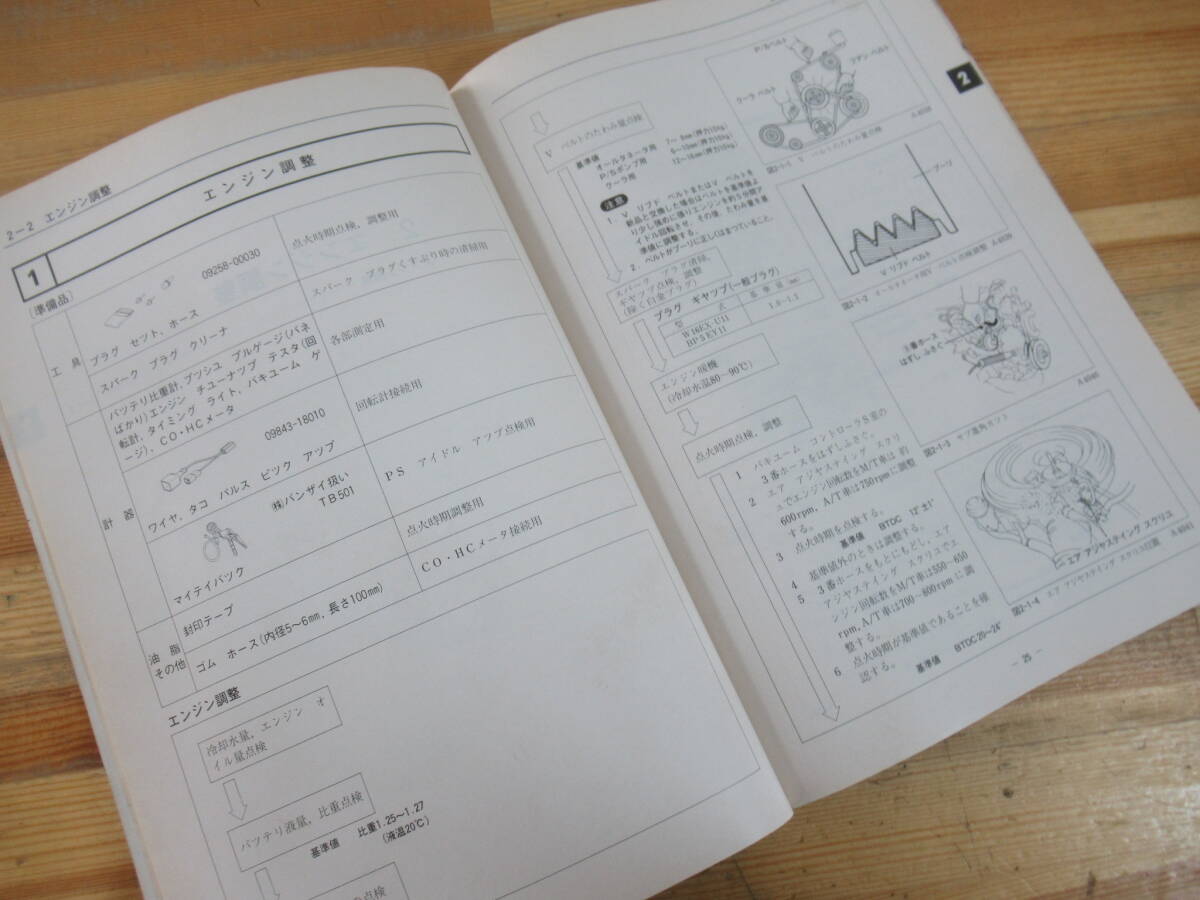 2-2 エンジン調整
1
エンジン調整
〔準備品〕
工具
09258-00030
プラグ セット、ホース
点火時期点検、調整用
スパーク プラグ クリーナ
スパーク プラグくすぶり時の清掃用
計器
バッテリ比重計、プッシュ プルゲージ(バネ
ばかり)エンジン チューナップ テスタ(回
転計、タイミング ライト、バキューム ゲ
ージ)、CO・HCメータ
各部測定用
09843-18010
ワイヤ、タコ パルス ピック アップ
回転計接続用
㈱バンザイ扱い
TB501
マイティバック
PS アイドル アップ点検用
油脂
その他
封印テープ
点火時期調整用
ゴム ホース(内径5~6mm, 長さ100mm)
CO・HCメータ接続用
エンジン調整
冷却水量, エンジン オ
イル量点検
バッテリ液量, 比重点検
基準値 比重1.25~1.27
(液温20℃)
の点検
V ベルトのたわみ量点検
基準値
オールタネータ用 7~ 9mm(押力10kg)
P/Sポンプ用 8~10mm(押力10kg)
クーラ用 12~16mm(押力10kg)
注意
1. V リブド ベルトまたはV ベルトを
新品と交換した場合はベルトを基準値よ
り少し強めに張りエンジンを約5分間ア
イドル回転させ、その後、たわみ量を基
準値に調整する。
2. ベルトがプーリに正しくはまっていること。
スパーク プラグ清掃,
ギャップ点検、調整
(除く白金プラグ)
プラグ ギャップ(一般プラグ)
型 式 基 準 値(mm)
W16EX-U11
BP5EY11
1.0~1.1
エンジン暖機
(冷却水温80~90℃)
点火時期点検, 調整
1 バキューム コントローラS室の
3番ホースをはずしふさぐ。
2 エア アジャスティング スクリ
ュでエンジン回転数をM/T車は 約
600rpm, A/T車は750rpmに調整
する。
3 点火時期を点検する。
基準値 BTDC 12°±1°
4 基準値外のときは調整する。
5 3番ホースをもとにもどし, エア
アジャスティング スクリュでエ
ンジン回転数をM/T車は550~650
rpm, A/T車は700~800rpmに調
整する。
6 点火時期が基準値であることを確
認する。
基準値 BTDC20~24°
P/Sベルト
ファン ベルト
クーラ ベルト
図2-1-1 V ベルトのたわみ量点検
プーリ
V リブド ベルト
図2-1-2
3番ホース
はずし, ふさぐ
図2-1-3 サブ進角カット
エア アジャスティング スクリュ
図2-1-4 エア アジャスティング スクリュ位置
2
― 25 ―